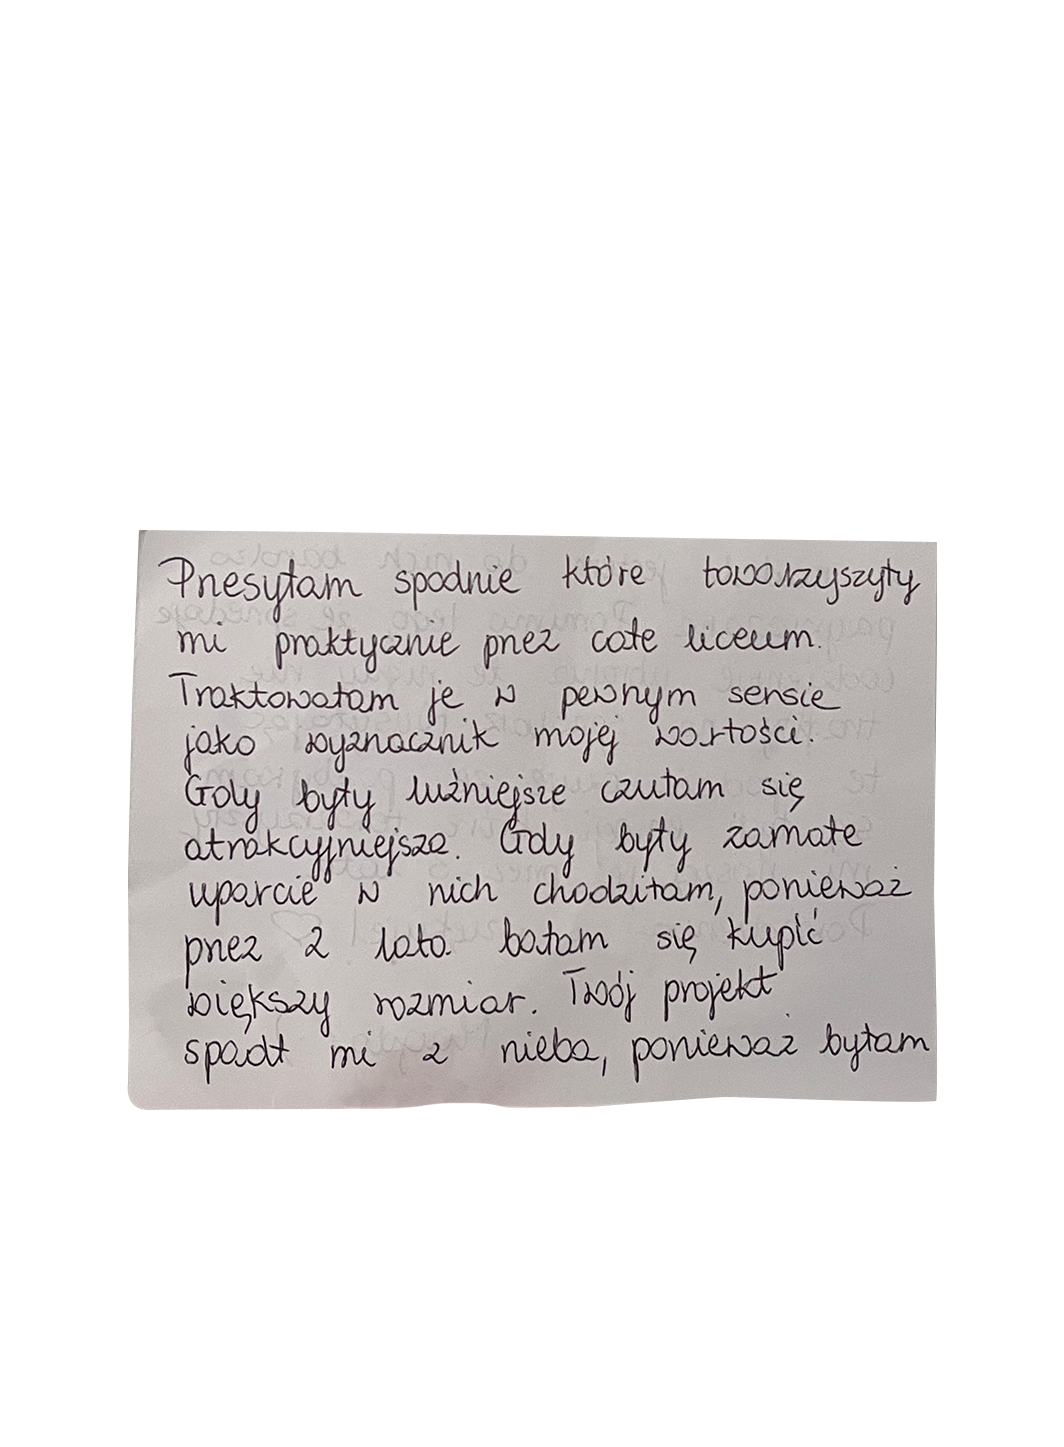 Przesyłam spodnie które towarzyszyły
mi praktycznie przez całe liceum.
Traktowałam je w pewnym sensie
jako wyznacznik mojej wartości.
Gdy były luźniejsze czułam się
atrakcyjniejsza. Gdy były zamałe
uparcie w nich chodziłam, ponieważ
przez 2 lata bałam się kupić
większy rozmiar. Twój projekt
spadł mi z nieba, ponieważ byłam